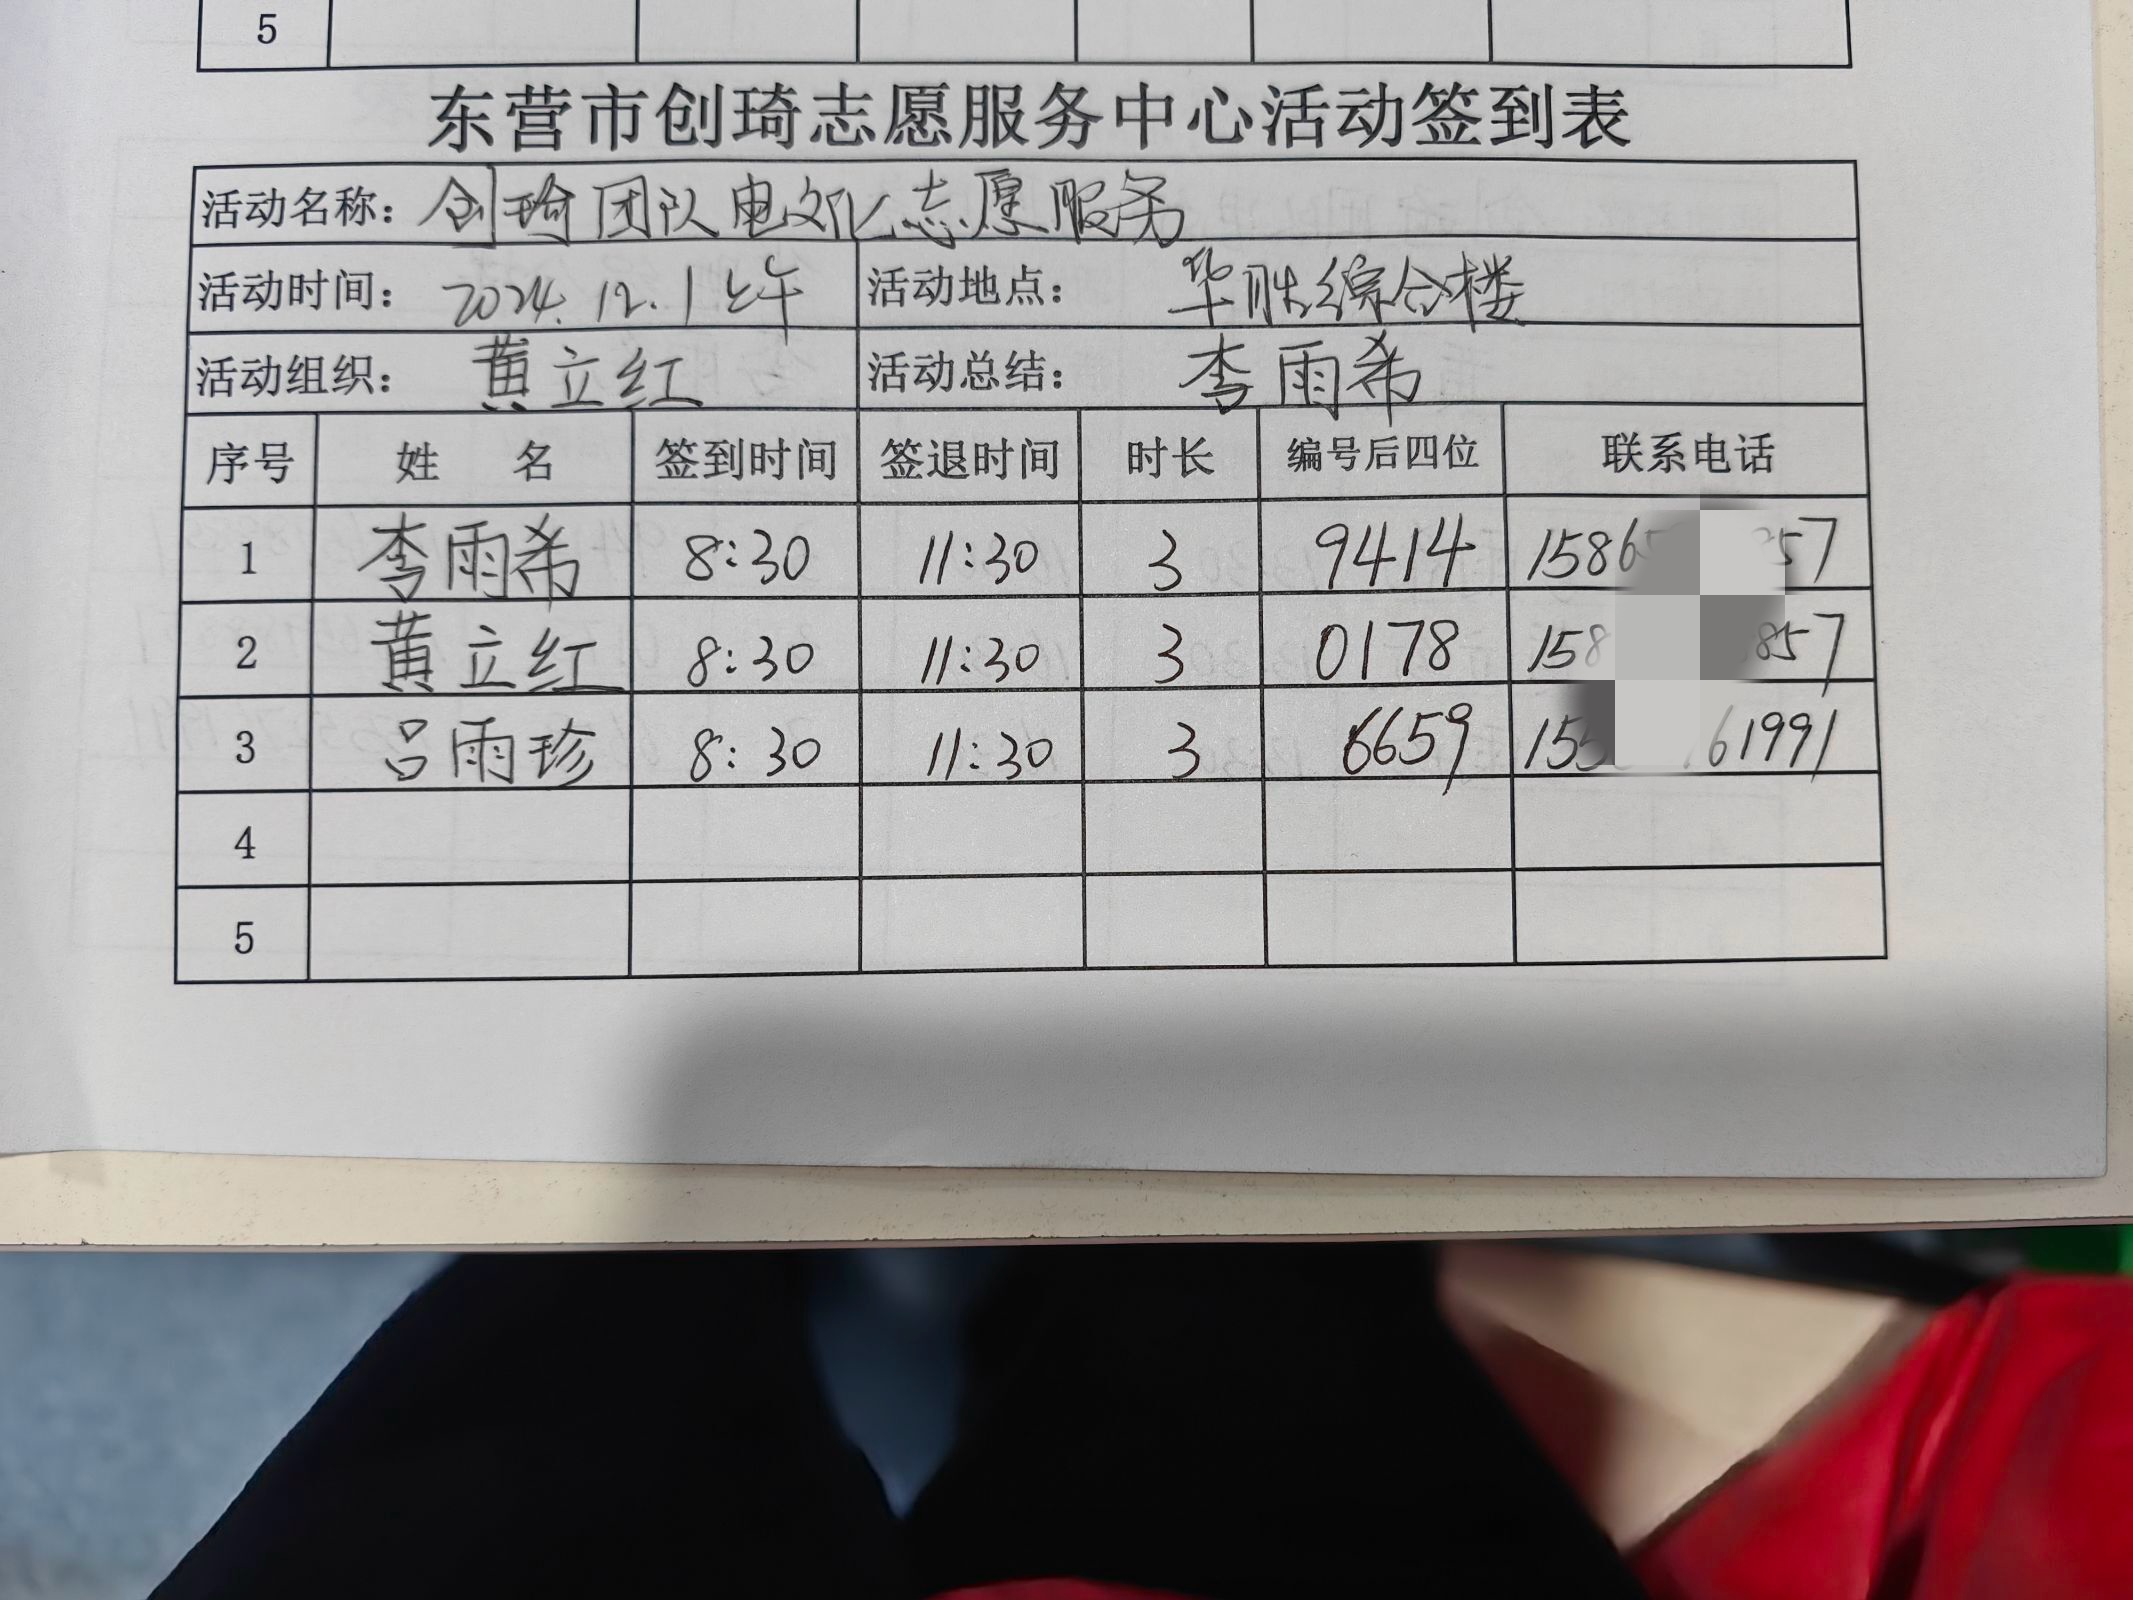 5
东营市创琦志愿服务中心活动签到表
活动名称：创琦团队电文化志愿服务
活动时间：2024.12.1上午 活动地点：华胜综合楼
活动组织：黄立红 活动总结：李雨希
序号 姓 名 签到时间 签退时间 时长 编号后四位 联系电话
1 李雨希 8:30 11:30 3 9414 1586 57
2 黄立红 8:30 11:30 3 0178 158 857
3 吕雨珍 8:30 11:30 3 6659 155 61991
4
5